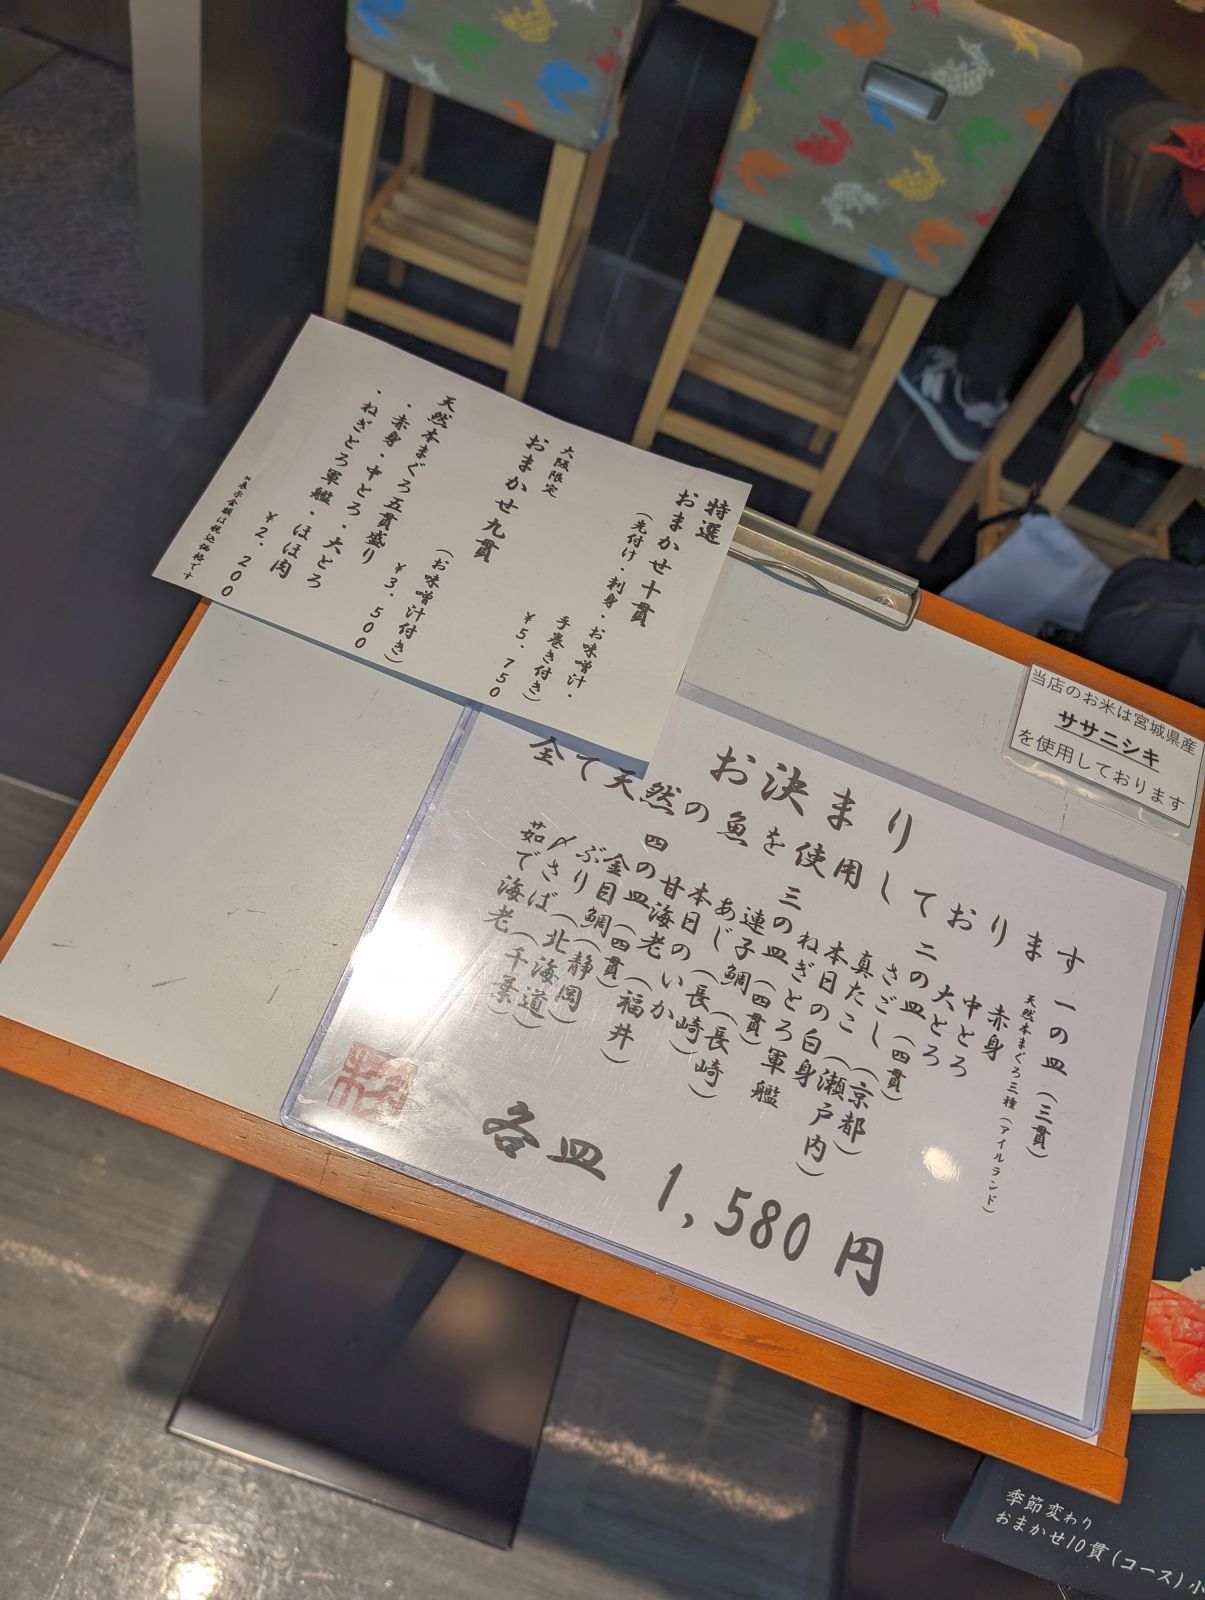 特選
おまかせ十貫
(先付け・刺身・お味噌汁・
手巻き付き)
¥5.750
大阪限定
おまかせ九貫
(お味噌汁付き)
¥3.500
天然本まぐろ五貫盛り
・赤身・中とろ・大とろ
・ねぎとろ軍艦・ほほ肉
¥2.200
※表示金額は税込価格です
当店のお米は宮城県産
ササニシキ
を使用しております
お決まり
全て天然の魚を使用しております
一の皿(三貫)
天然本まぐろ三種(アイルランド)
赤身
中とろ
大とろ
二の皿(四貫)
さごし(京都)
真たこ(瀬戸内)
本日の白身
ねぎとろ軍艦
三の皿(四貫)
連子鯛(長崎)
あじ(長崎)
本日のいか
甘海老(福井)
四の皿(四貫)
金目鯛(静岡)
ぶり(北海道)
〆さば
茹で海老(千葉)
各皿 1,580円
季節変わり
おまかせ10貫(コース)小